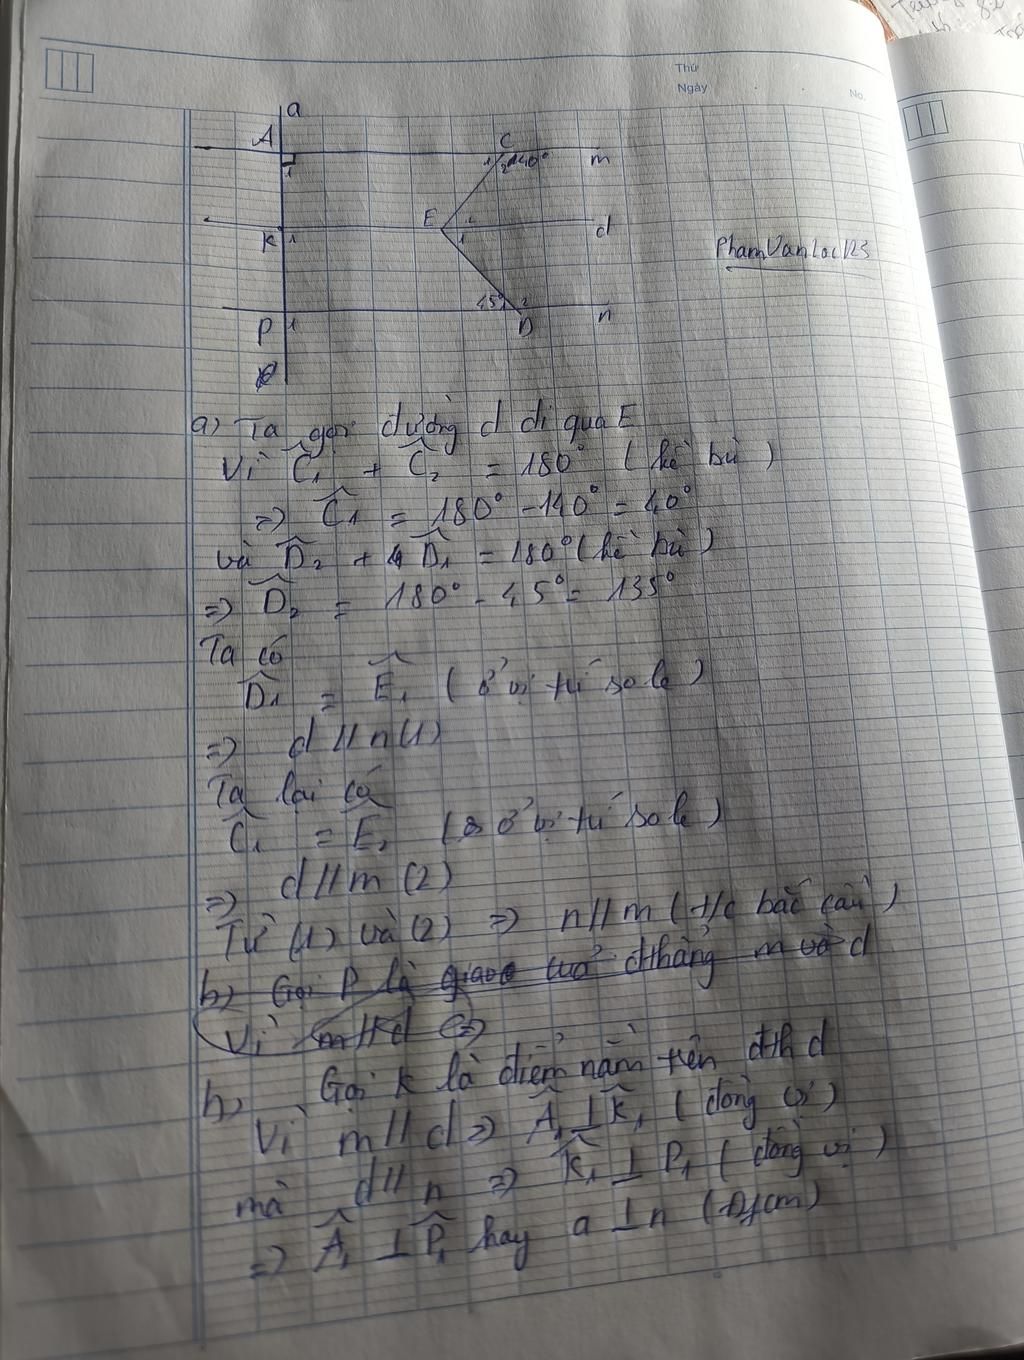 Thứ
Ngày
No.
a
A
C
1
1
2
140°
m
E
2
1
K
1
d
PhamVanLoc123
45°
2
P
1
D
n
a) Ta gọi đường d đi qua E
Vì Ĉ₁ + Ĉ₂ = 180° (kề bù)
=> Ĉ₁ = 180° - 140° = 40°
và D̂₂ + D̂₁ = 180° (kề bù)
=> D̂₂ = 180° - 45° = 135°
Ta có
D̂₁ = Ê₁ (ở vị trí so le)
=> d // n (1)
Ta lại có
Ĉ₁ = Ê₂ (ở vị trí so le)
=> d // m (2)
Từ (1) và (2) => n // m (t/c bắc cầu)
b) Gọi P là giao của đthẳng m và d
Vì m // d =>
b) Gọi K là điểm nằm trên đth d
Vì m // d => Â₁ ⊥ K̂₁ (đồng vị)
mà d // n => K̂₁ ⊥ P₁ (đồng vị)
=> Â₁ ⊥ P̂₁ hay a ⊥ n (Đfcm)